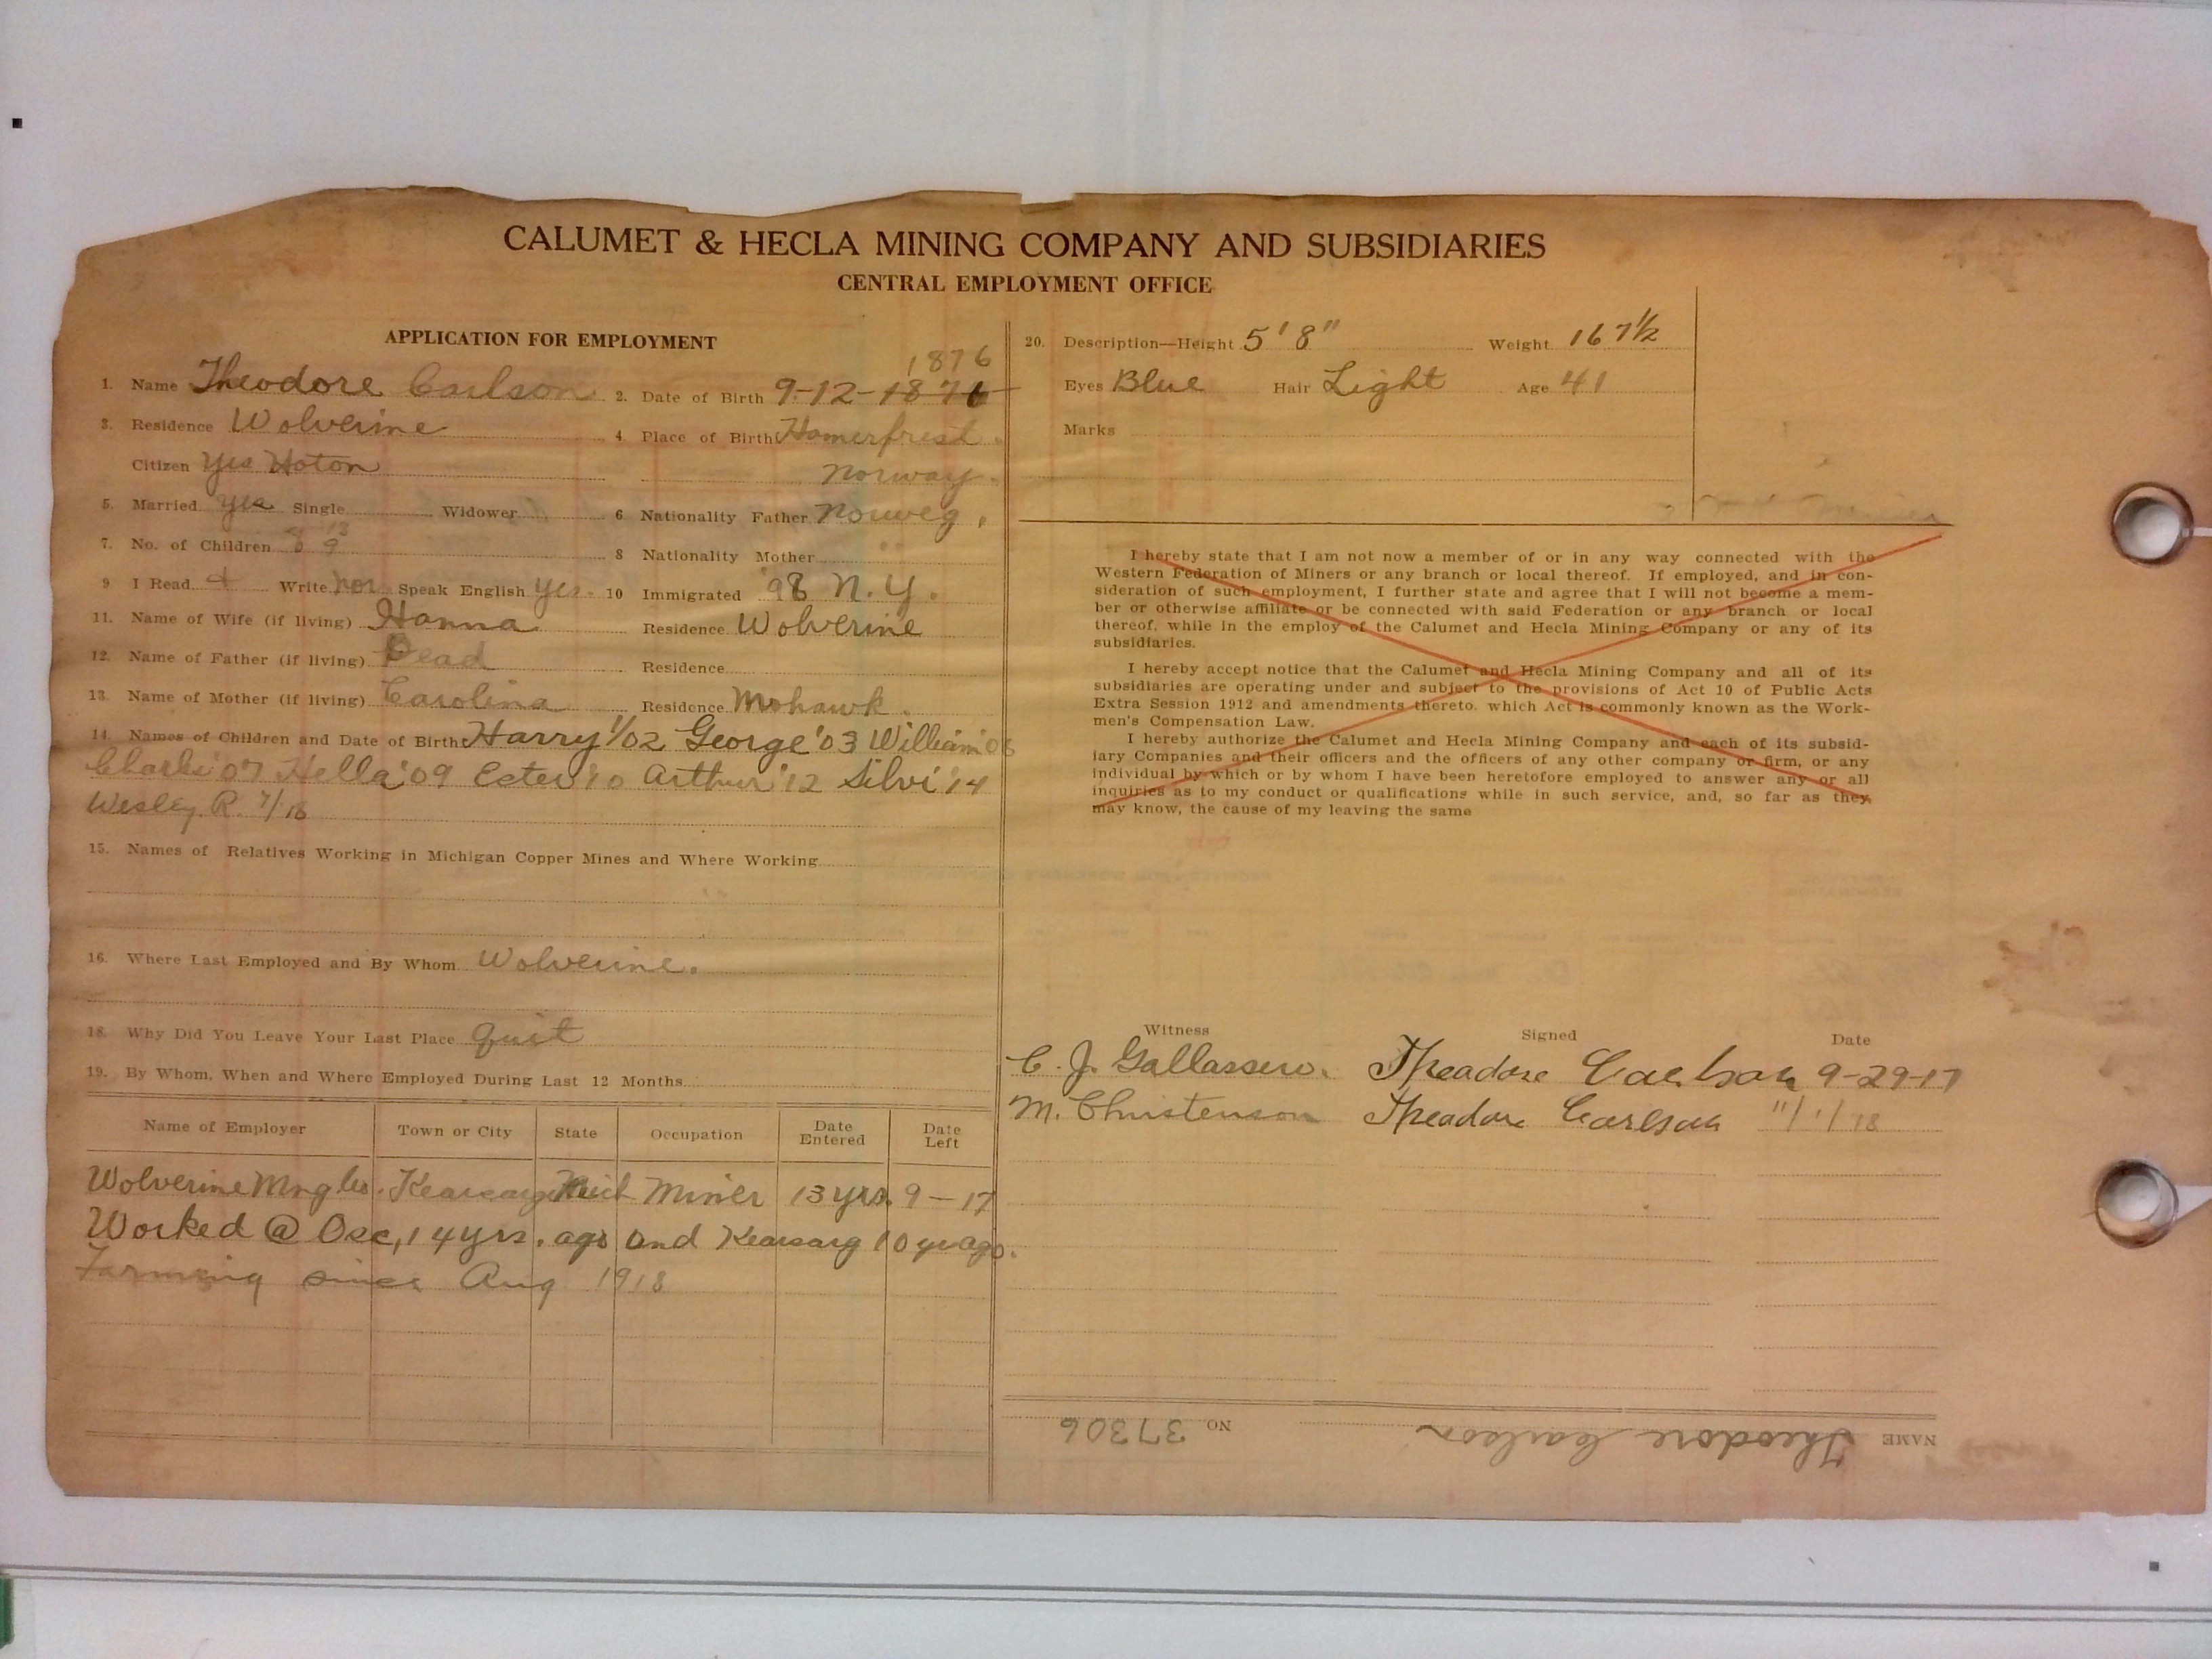 CALUMET & HECLA MINING COMPANY AND SUBSIDIARIES
CENTRAL EMPLOYMENT OFFICE
APPLICATION FOR EMPLOYMENT
1876
1. Name Theodore Carlson 2. Date of Birth 9-12-1876
3. Residence Wolverine 4. Place of Birth Hamerfrest.
Citizen Yes Hoton Norway.
5. Married yes Single Widower 6 Nationality Father Norweg.
7. No. of Children 8 9 8 Nationality Mother
9 I Read + Write nor Speak English yes. 10 Immigrated '98 N.Y.
11. Name of Wife (if living) Hanna Residence Wolverine
12. Name of Father (if living) Dead Residence
13. Name of Mother (if living) Carolina Residence Mohawk.
14. Names of Children and Date of Births Harry 1/02 George '03 William 06
Charls '07 Hella '09 Ester '10 Arthur '12 Silvi '14
Wesley. R. 7/18
15. Names of Relatives Working in Michigan Copper Mines and Where Working
16. Where Last Employed and By Whom Wolverine.
18. Why Did You Leave Your Last Place quit
19. By Whom, When and Where Employed During Last 12 Months
Name of Employer Town or City State Occupation Date Entered Date Left
Wolverine Mng Co. Kearsarge Mich Miner 13 yrs. 9-17
Worked @ Osc, 14 yrs. ago and Kearsarg 10 yr ago.
Farming since Aug 1918
20. Description—Height 5' 8" Weight 167½
Eyes Blue Hair Light Age 41
Marks
I hereby state that I am not now a member of or in any way connected with the
Western Federation of Miners or any branch or local thereof. If employed, and in con-
sideration of such employment, I further state and agree that I will not become a mem-
ber or otherwise affiliate or be connected with said Federation or any branch or local
thereof, while in the employ of the Calumet and Hecla Mining Company or any of its
subsidiaries.
I hereby accept notice that the Calumet and Hecla Mining Company and all of its
subsidiaries are operating under and subject to the provisions of Act 10 of Public Acts
Extra Session 1912 and amendments thereto. which Act is commonly known as the Work-
men's Compensation Law.
I hereby authorize the Calumet and Hecla Mining Company and each of its subsid-
iary Companies and their officers and the officers of any other company or firm, or any
individual by which or by whom I have been heretofore employed to answer any or all
inquiries as to my conduct or qualifications while in such service, and, so far as they
may know, the cause of my leaving the same
Witness Signed Date
C. J. Gallassero. Theadore Carlson 9-29-17
M. Christenson Theadore Carlson 11/1/18
NAME Theodore Carlson NO 37306